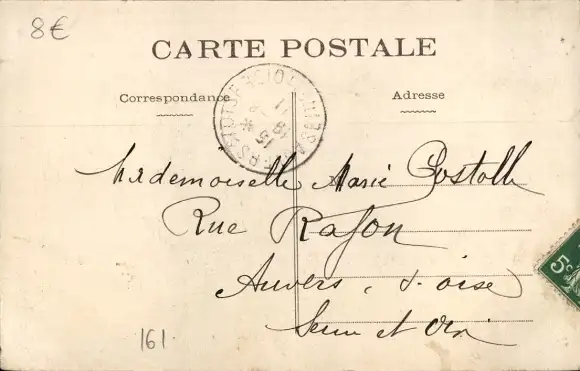 8€
CARTE POSTALE
Correspondance
Adresse
Mademoiselle Marie Postolle
Rue Rajon
Auvers. s. oise
Seine et Oise
161
5c